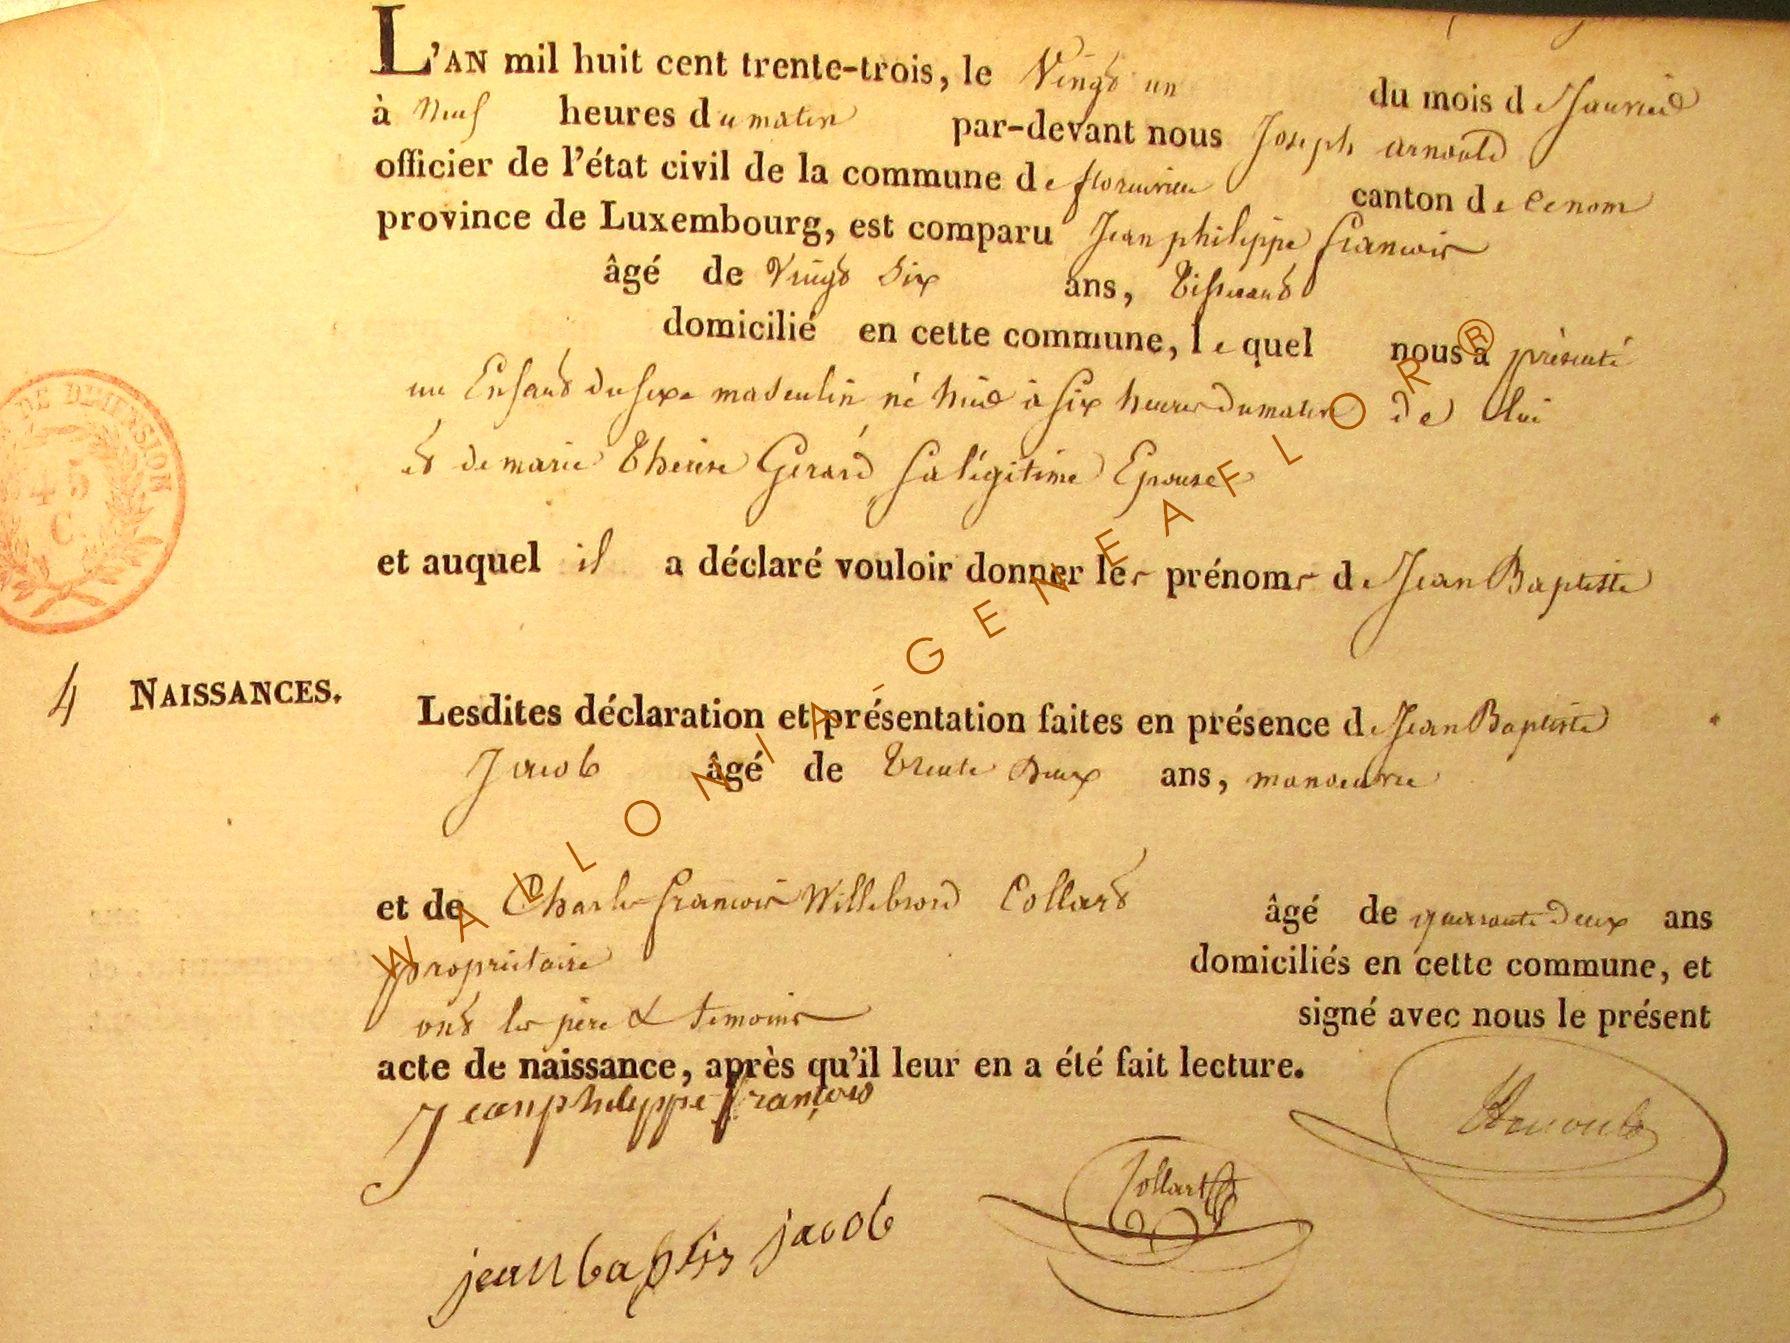 L'AN mil huit cent trente-trois, le Vingt un du mois de Janvier
à Neuf heures du matin par-devant nous Joseph arnould
officier de l'état civil de la commune de florenville canton de
province de Luxembourg, est comparu Jean philippe francois
âgé de Vingt Six ans, Tisserant
domicilié en cette commune, lequel nous a présenté
un Enfant du sexe masculin né hier à six heures du matin de lui
et de marie Therese Gerard sa légitime Epouse
et auquel il a déclaré vouloir donner les prénoms de Jean Baptiste
4 NAISSANCES.
Lesdites déclaration et présentation faites en présence de Jean Baptiste
Jacob âgé de Trente Deux ans, manoeuvre
et de Charles francois Willebrord Collart âgé de quarante deux ans
propriétaire domiciliés en cette commune, et
ont les père & temoins signé avec nous le présent
acte de naissance, après qu'il leur en a été fait lecture.
Jean philippe françois
Arnould
Collart
jean baptis jacob
45
C.
WALLONIA-GENEAFLOR ®